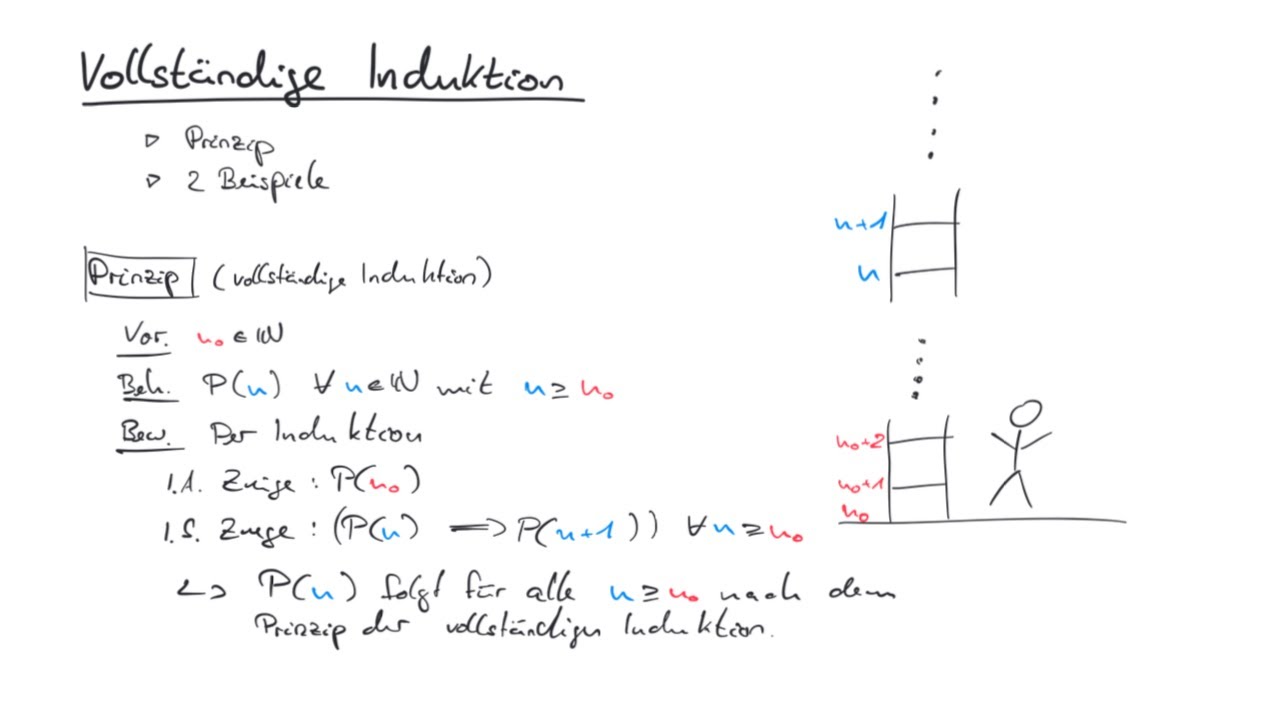 Vollständige Induktion
▷ Prinzip
▷ 2 Beispiele
Prinzip (vollständige Induktion)
Vor. n₀ ∈ ℕ
Beh. P(n) ∀ n ∈ ℕ mit n ≥ n₀
Bew. Per Induktion
I.A. Zeige : P(n₀)
I.S. Zeige : (P(n) ⟹ P(n+1)) ∀ n ≥ n₀
↪ P(n) folgt für alle n ≥ n₀ nach dem
Prinzip der vollständigen Induktion.
n+1
n
n₀+2
n₀+1
n₀